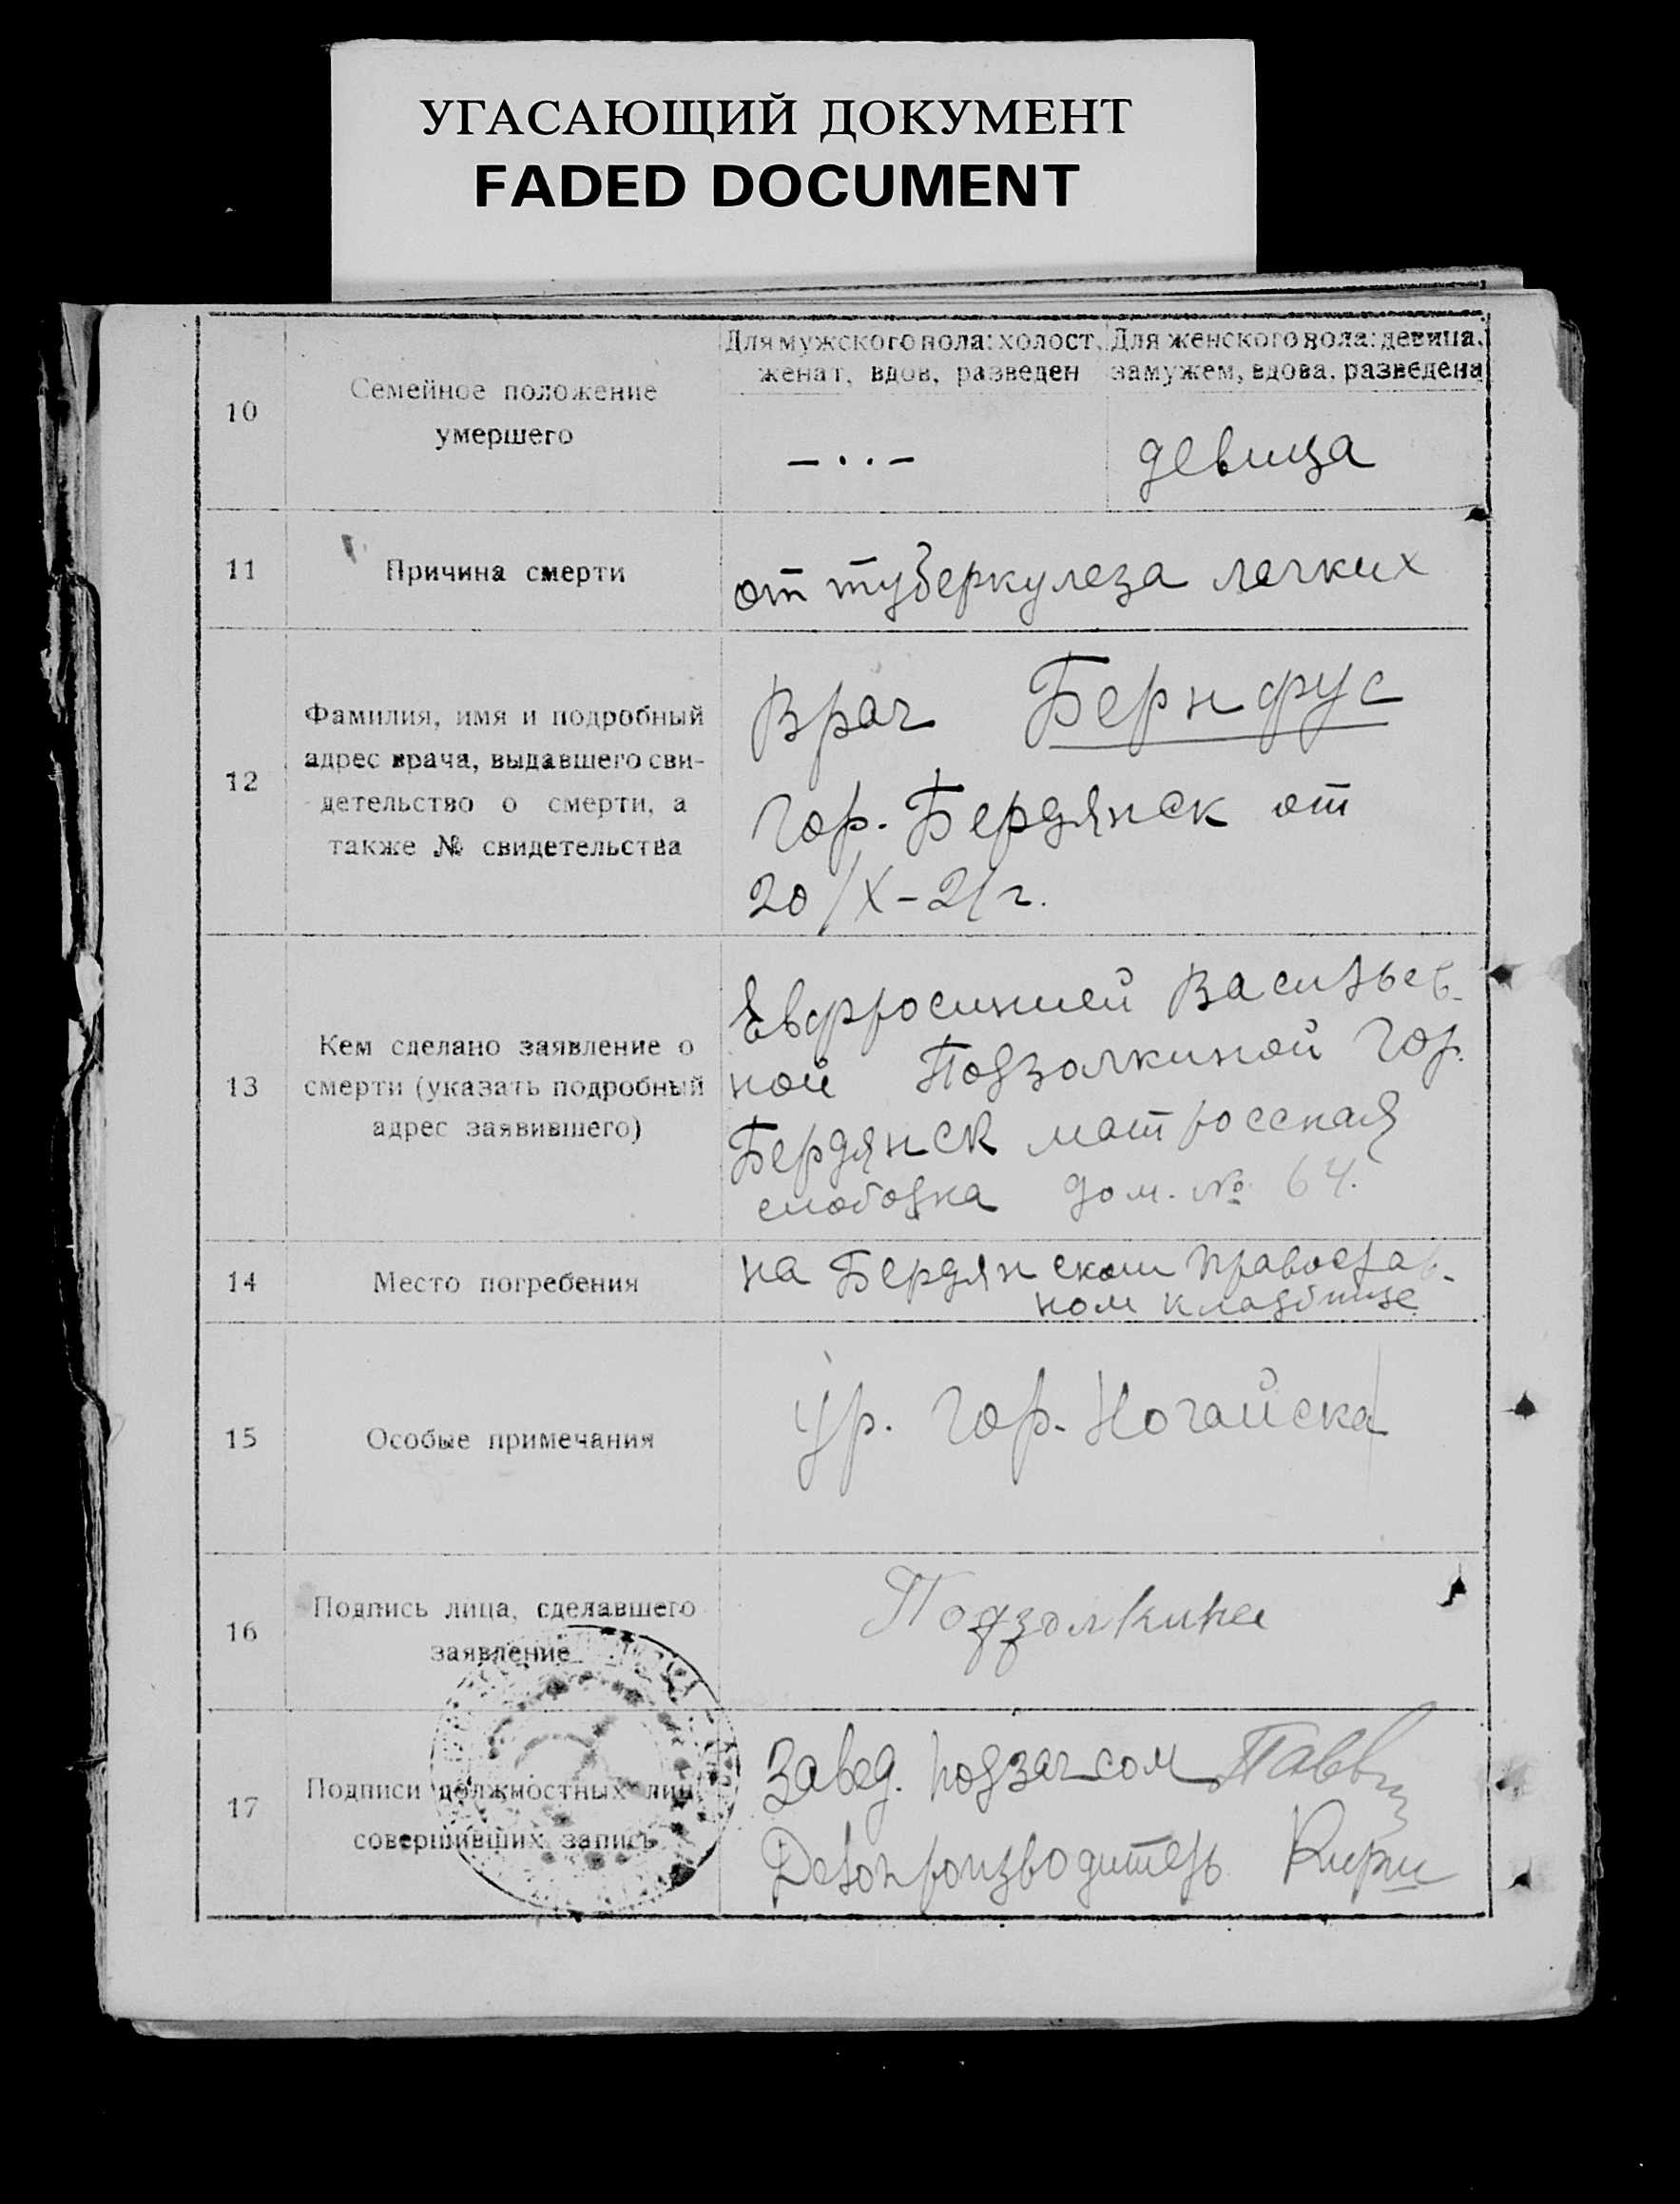 УГАСАЮЩИЙ ДОКУМЕНТ
FADED DOCUMENT
10
Семейное положение
умершего
Для мужского пола: холост,
женат, вдов, разведен
Для женского пола: девица,
замужем, вдова, разведена
— . . —
девица
11
Причина смерти
от туберкулеза легких
12
Фамилия, имя и подробный
адрес врача, выдавшего сви-
детельство о смерти, а
также № свидетельства
Врач Бернфус
Гор. Бердянск от
20/X-21 г.
13
Кем сделано заявление о
смерти (указать подробный
адрес заявившего)
Евфросинией Васильев-
ной Подзолкиной Гор.
Бердянск матросская
слободка дом. № 64.
14
Место погребения
на Бердянском православ-
ном кладбище.
15
Особые примечания
Ур. Гор. Ногайска
16
Подпись лица, сделавшего
заявление
Подзолкина
17
Подписи должностных лиц,
совершивших запись
Завед. подзагсом
Делопроизводитель